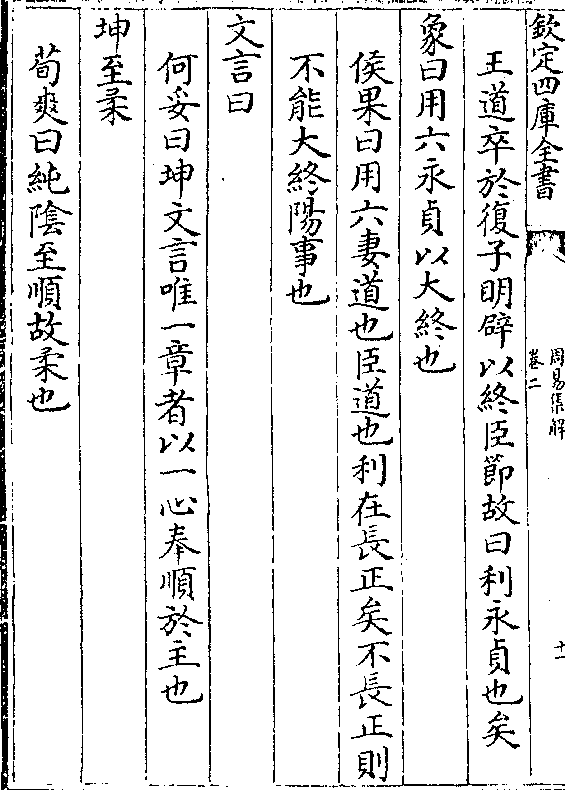 欽定四庫全書
周易集解
卷二
十一
王道卒於復子明辟以終臣節故曰利永貞也矣
象曰用六永貞以大終也
侯果曰用六妻道也臣道也利在長正矣不長正則
不能大終陽事也
文言曰
何妥曰坤文言唯一章者以一心奉順於主也
坤至柔
荀爽曰純陰至順故柔也